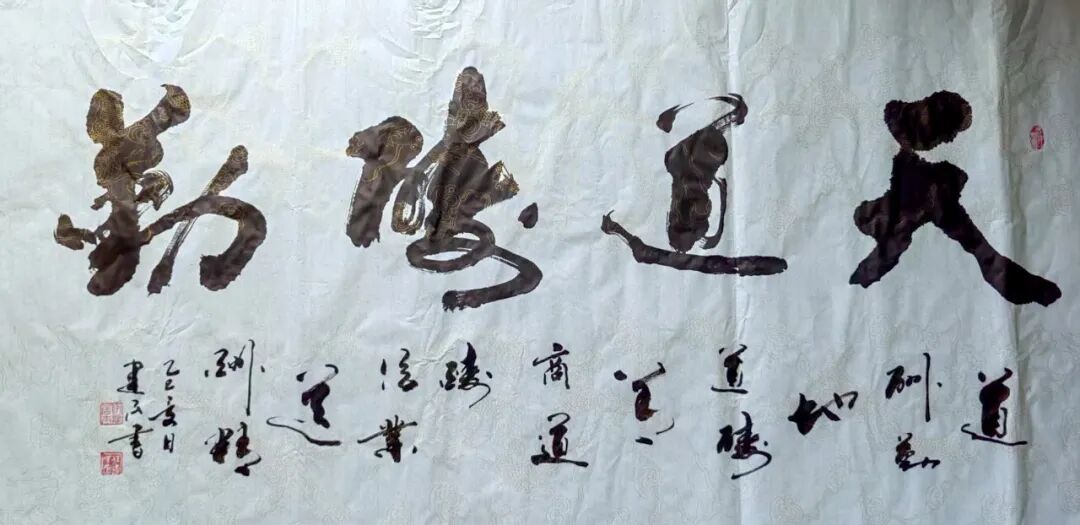 天道酬勤
道
酬勤
地
道酬
善
商道
酬
信業
道
酬精
乙巳夏日
建書